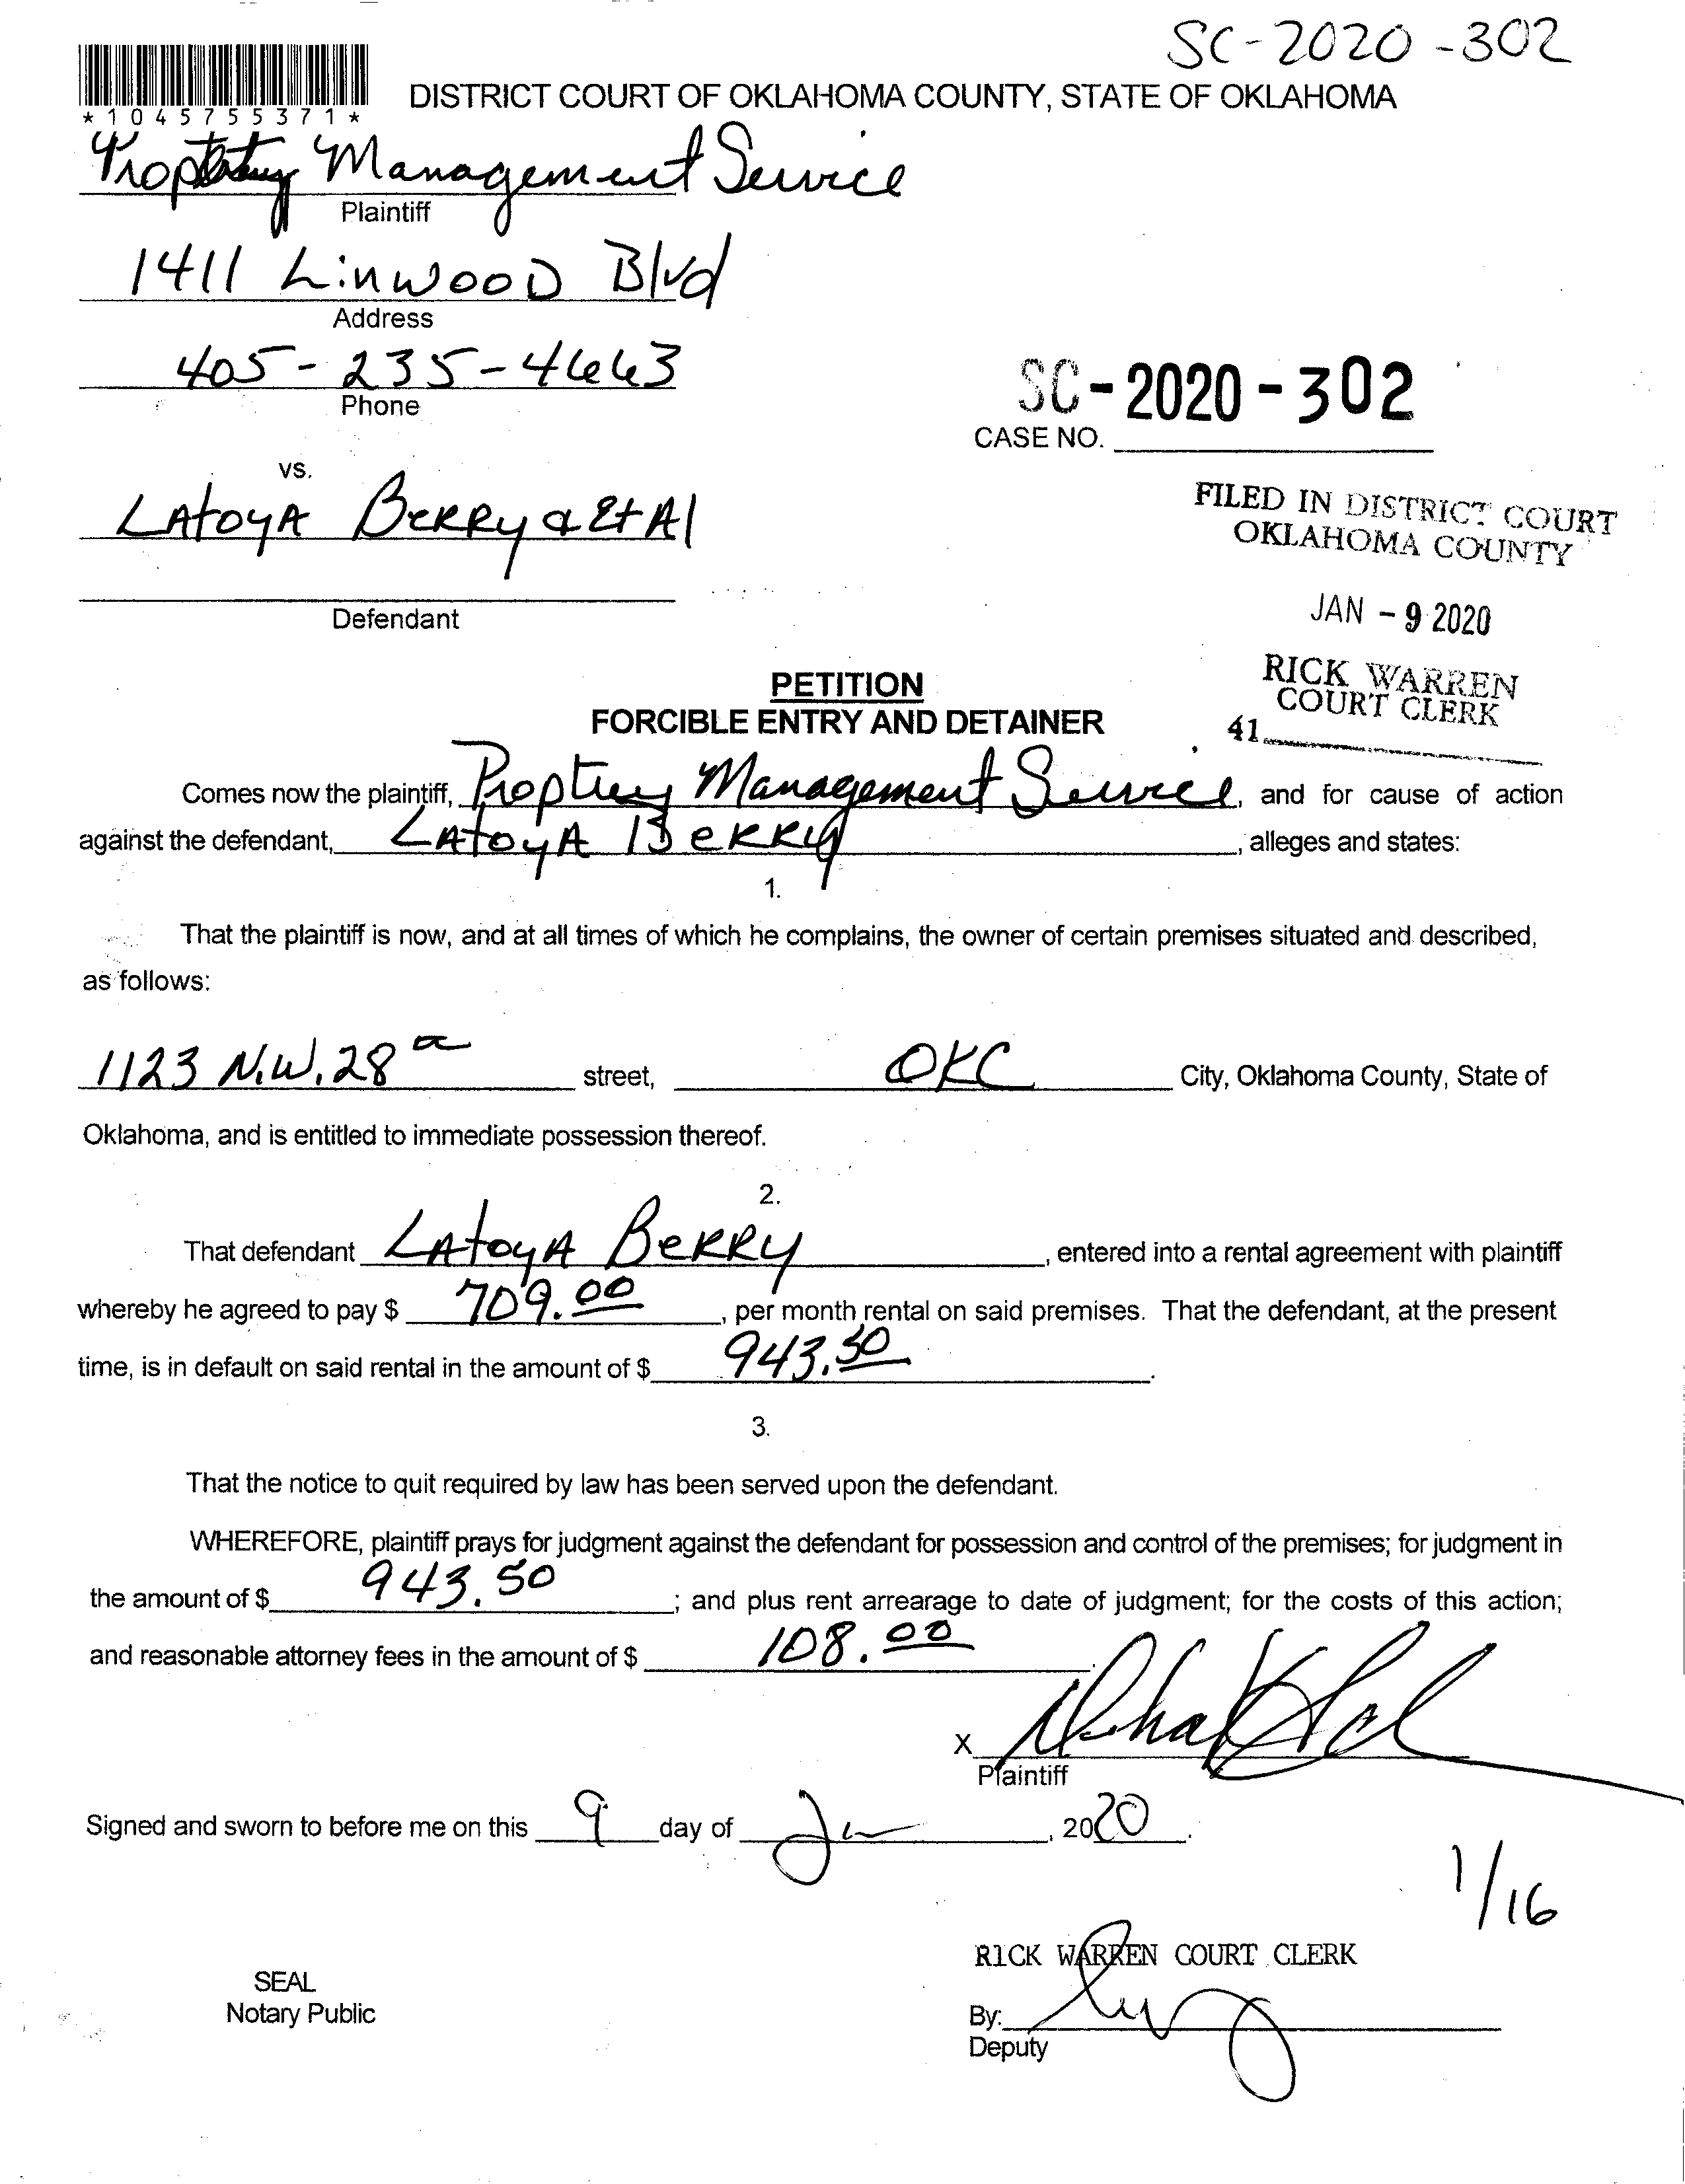 SC-2020-302
*1045755371*
DISTRICT COURT OF OKLAHOMA COUNTY, STATE OF OKLAHOMA
Management Service
Plaintiff
1411 LinwooD Blvd
Address
405-235-4663
Phone
SC-2020-302
CASE NO.
vs.
LAtoyA BeRRy & Et Al
FILED IN DISTRICT COURT
OKLAHOMA COUNTY
Defendant
JAN - 9 2020
RICK WARREN
COURT CLERK
41
PETITION
FORCIBLE ENTRY AND DETAINER
Comes now the plaintiff, Management Service, and for cause of action
against the defendant, LAtoyA BeRRy, alleges and states:
1.
That the plaintiff is now, and at all times of which he complains, the owner of certain premises situated and described,
as follows:
1123 N.W. 28 street, OKC City, Oklahoma County, State of
Oklahoma, and is entitled to immediate possession thereof.
2.
That defendant LAtoyA BeRRy, entered into a rental agreement with plaintiff
whereby he agreed to pay $ 709.00, per month rental on said premises. That the defendant, at the present
time, is in default on said rental in the amount of $ 943.50.
3.
That the notice to quit required by law has been served upon the defendant.
WHEREFORE, plaintiff prays for judgment against the defendant for possession and control of the premises; for judgment in
the amount of $ 943.50; and plus rent arrearage to date of judgment; for the costs of this action;
and reasonable attorney fees in the amount of $ 108.00.
X
Plaintiff
Signed and sworn to before me on this 9 day of , 2020.
1/16
RICK WARREN COURT CLERK
SEAL
Notary Public
By:
Deputy